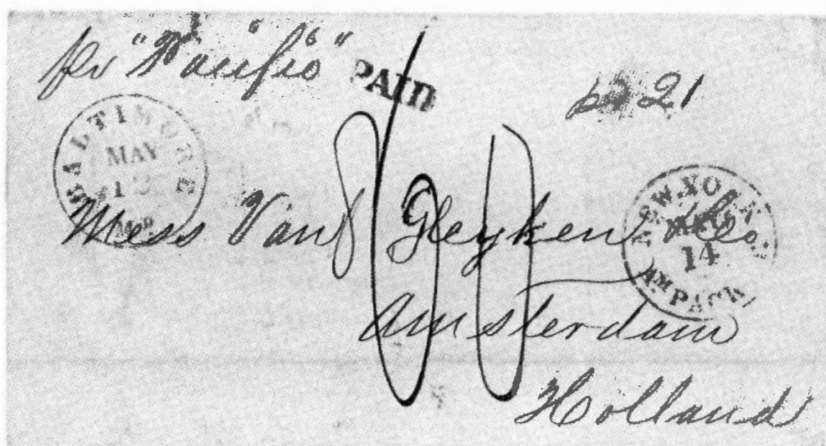 pr "Pacific"
PAID
pd 21
BALTIMORE
MAY
12
MD
NEW.YORK
14
AM PACKT
Mess Van Gleyken & Co
Amsterdam
Holland